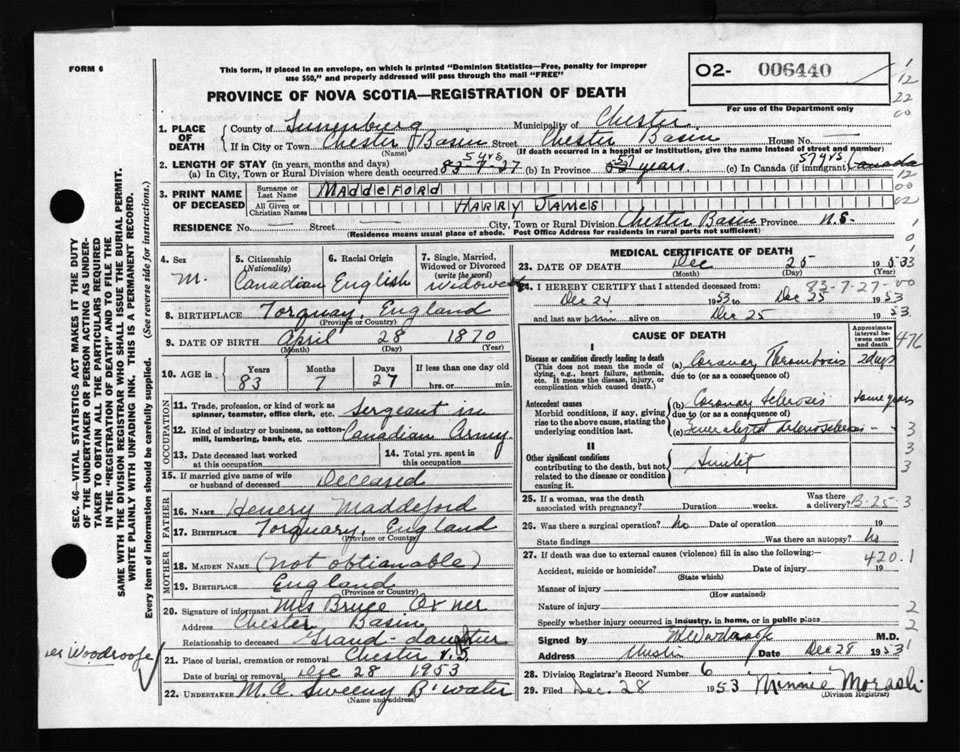 FORM 6
This form, if placed in an envelope, on which is printed "Dominion Statistics—Free, penalty for improper
use $50," and properly addressed will pass through the mail "FREE"
PROVINCE OF NOVA SCOTIA—REGISTRATION OF DEATH
O2- 006440
For use of the Department only
1
12
22
00
1. PLACE OF DEATH
County of Lunenburg Municipality of Chester
If in City or Town Chester Basin Street Chester Basin House No. —
(Name) (If death occurred in a hospital or institution, give the name instead of street and number)
2. LENGTH OF STAY (in years, months and days)
(a) In City, Town or Rural Division where death occurred 5 yrs. 83-7-27 (b) In Province 57 years. (c) In Canada (if immigrant) 57 yrs. Canada
12
3. PRINT NAME OF DECEASED
Surname or Last Name MADDEFORD
00
All Given or Christian Names HARRY JAMES
02
RESIDENCE No. — Street — City, Town or Rural Division Chester Basin Province N.S.
(Residence means usual place of abode. Post Office Address for residents in rural parts not sufficient)
4. Sex
M.
5. Citizenship
(Nationality)
Canadian
6. Racial Origin
English
7. Single, Married, Widowed or Divorced
(write the word)
Widowed
8. BIRTHPLACE Torquay, England
(Province or Country)
9. DATE OF BIRTH April 28 1870
(Month) (Day) (Year)
10. AGE in
Years Months Days If less than one day
83 7 27 hrs. or min.
OCCUPATION
11. Trade, profession, or kind of work as
spinner, teamster, office clerk, etc. Sergeant in
12. Kind of industry or business, as cotton-
mill, lumbering, bank, etc. Canadian Army
13. Date deceased last worked
at this occupation
14. Total yrs. spent in
this occupation
15. If married give name of wife
or husband of deceased Deceased
FATHER
16. Name Henery Maddeford
17. BIRTHPLACE Torquary, England
(Province or Country)
MOTHER
18. MAIDEN NAME (Not obtianable)
19. BIRTHPLACE England
(Province or Country)
20. Signature of informant Mrs Bruce Oxner
Address Chester Basin
Relationship to deceased Grand-daughter
21. Place of burial, cremation or removal Chester N.S.
Date of burial or removal Dec 28 1953
22. UNDERTAKER M.A. Sweeny B'water
(Name and address)
MEDICAL CERTIFICATE OF DEATH
23. DATE OF DEATH Dec 25 1953
(Month) (Day) (Year)
83-7-27-00
24. I HEREBY CERTIFY that I attended deceased from:
Dec 24 1953 to Dec 25 1953
and last saw him alive on Dec 25 1953
CAUSE OF DEATH
Approximate interval between onset and death
476
I
Disease or condition directly leading to death
(This does not mean the mode of
dying, e.g., heart failure, asthenia,
etc. It means the disease, injury, or
complication which caused death.)
(a) Coronary Thrombosis 2 days
due to (or as a consequence of)
Antecedent causes
Morbid conditions, if any, giving
rise to the above cause, stating the
underlying condition last.
(b) Coronary Sclerosis some years
due to (or as a consequence of)
(c) Generalized Arteriosclerosis -
3
3
3
II
Other significant conditions
contributing to the death, but not
related to the disease or condition
causing it.
25. If a woman, was the death
associated with pregnancy? Duration weeks. Was there a delivery? B-25-3
26. Was there a surgical operation? No Date of operation 19
State findings Was there an autopsy? No
27. If death was due to external causes (violence) fill in also the following:—
420.1
Accident, suicide or homicide? Date of injury 19
(State which)
Manner of injury
(How sustained)
Nature of injury
2
Specify whether injury occurred in industry, in home, or in public place
2
Signed by M.D.
Address Chester Date Dec 28 1953
28. Division Registrar's Record Number 6
29. Filed Dec. 28 1953 Minnie Morash
(Division Registrar)
SEC. 46—VITAL STATISTICS ACT MAKES IT THE DUTY
OF THE UNDERTAKER OR PERSON ACTING AS UNDER-
TAKER TO OBTAIN ALL THE PARTICULARS REQUIRED
IN THE "REGISTRATION OF DEATH" AND TO FILE THE
SAME WITH THE DIVISION REGISTRAR WHO SHALL ISSUE THE BURIAL PERMIT.
WRITE PLAINLY WITH UNFADING INK. THIS IS A PERMANENT RECORD.
Every item of information should be carefully supplied. (See reverse side for instructions.)
Woodroofe